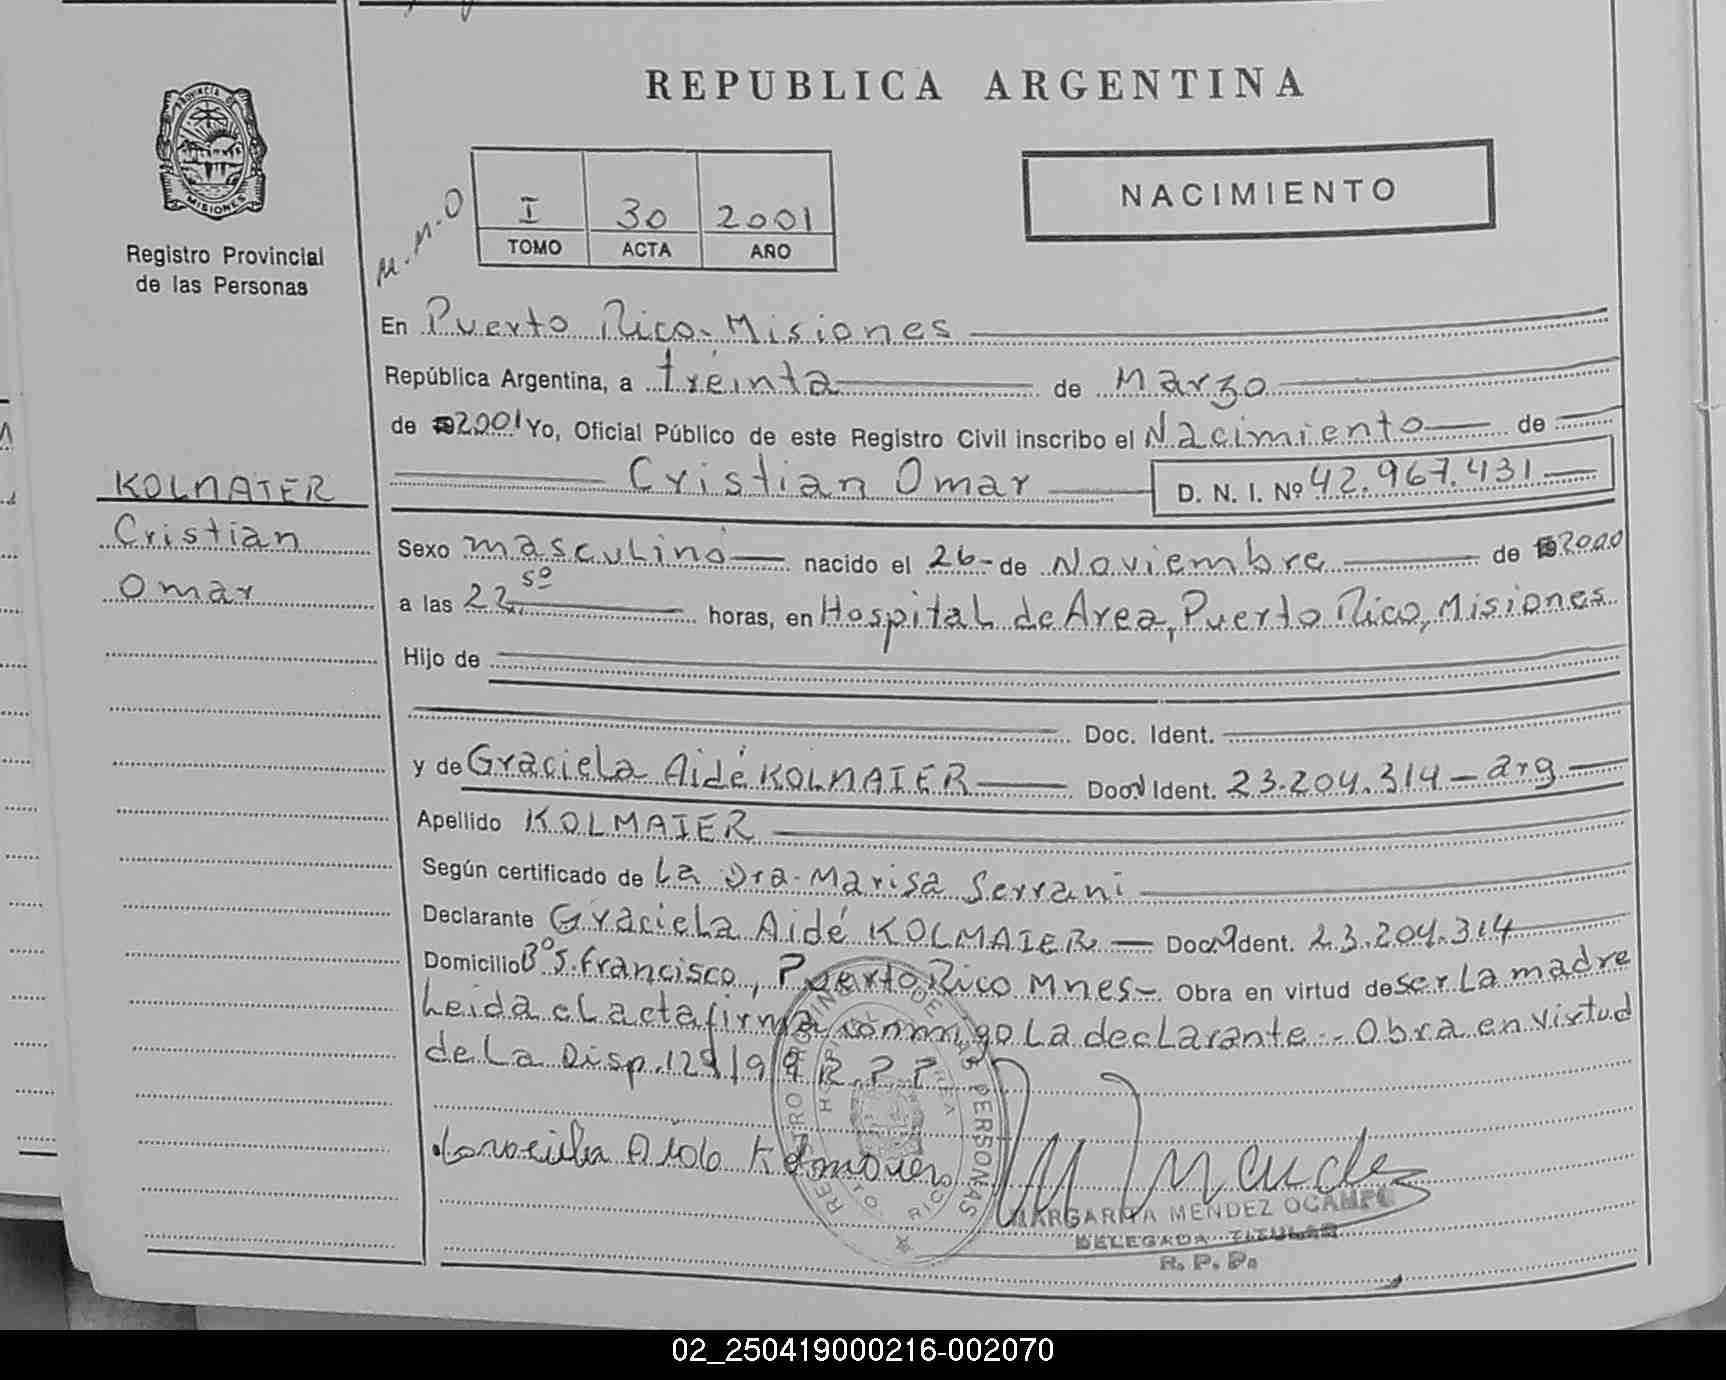 REPUBLICA ARGENTINA
PROVINCIA DE
MISIONES
Registro Provincial
de las Personas
NACIMIENTO
M.M.O
I 30 2001
TOMO ACTA AÑO
En Puerto Rico-Misiones
República Argentina, a treinta de Marzo
de 2001 Yo, Oficial Público de este Registro Civil inscribo el Nacimiento de
Cristian Omar D. N. I. Nº 42.967.431
KOLMAIER
Cristian
Omar
Sexo masculino nacido el 26- de Noviembre de 2000
a las 22 50 horas, en Hospital de Area, Puerto Rico, Misiones
Hijo de
Doc. Ident.
y de Graciela Aidé KOLMAIER Doc. Ident. 23.204.314 - arg
Apellido KOLMAIER
Según certificado de La Dra. Marisa Serrani
Declarante Graciela Aidé KOLMAIER Doc. Ident. 23.204.314
Domicilio Bº S. Francisco, Puerto Rico Mnes- Obra en virtud de ser La madre
Leida el acta firma conmigo La declarante.- Obra en virtud
de La Disp. 129/99 R.P.P.
REGISTRO PROVINCIAL DE LAS PERSONAS
MARGARITA MENDEZ OCAMPO
DELEGADA TITULAR
R. P. P.
02_250419000216-002070